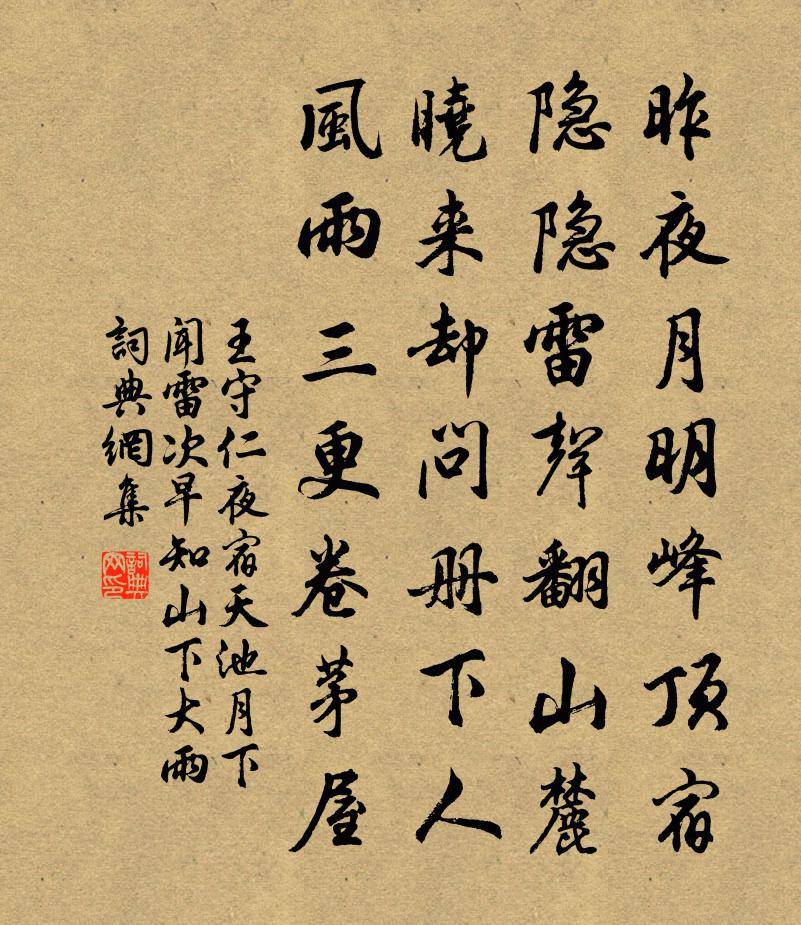 昨夜月明峰顶宿
隐隐雷聲翻山麓
曉来却問册下人
風雨三更卷茅屋
王守仁夜宿天池月下
闻雷次早知山下大雨
詞典網集
詞典網印